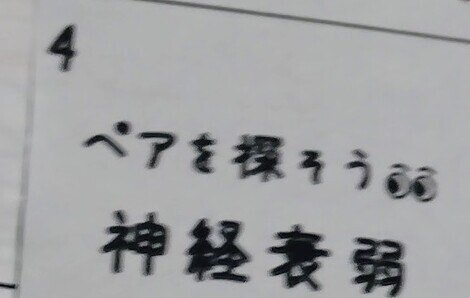 4
ペアを探そう👀
神経衰弱